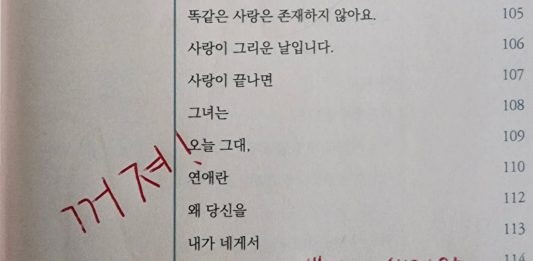 똑같은 사랑은 존재하지 않아요. 105
사랑이 그리운 날입니다. 106
사랑이 끝나면 107
그녀는 108
오늘 그대, 109
연애란 110
왜 당신을 112
내가 네게서 113
꺼져!
114